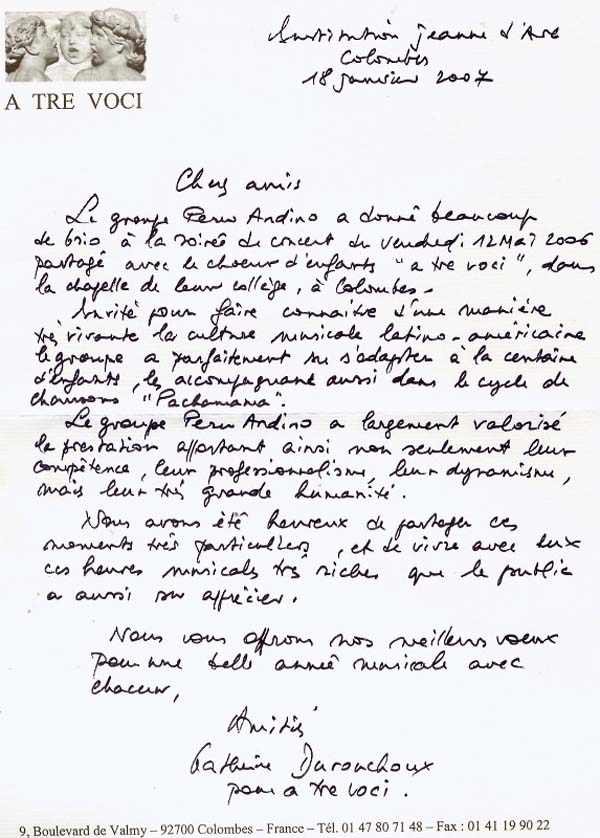 Institution Jeanne d'Arc
Colombes
18 janvier 2007
A TRE VOCI
Chers amis
Le groupe Peru Andino a donné beaucoup
de brio à la soirée de concert du vendredi 12 Mai 2006
partagé avec le choeur d'enfants "a tre voci", dans
la chapelle de leur collège, à Colombes -
Invité pour faire connaitre d'une manière
très vivante la culture musicale latino-américaine
le groupe a parfaitement su s'adapter à la centaine
d'enfants, les accompagnant aussi dans le cycle de
chansons "Pachamama".
Le groupe Peru Andino a largement valorisé
la prestation apportant ainsi non seulement leur
compétence, leur professionnalisme, leur dynamisme,
mais leur très grande humanité.
Nous avons été heureux de partager ces
moments très particuliers, et de vivre avec eux
ces heures musicales très riches que le public
a aussi su apprécier.
Nous vous offrons nos meilleurs voeux
pour une belle année musicale avec
chaleur,
Amitiés
Catherine Durouchoux
pour a tre voci.
9, Boulevard de Valmy – 92700 Colombes – France – Tél. 01 47 80 71 48 – Fax : 01 41 19 90 22